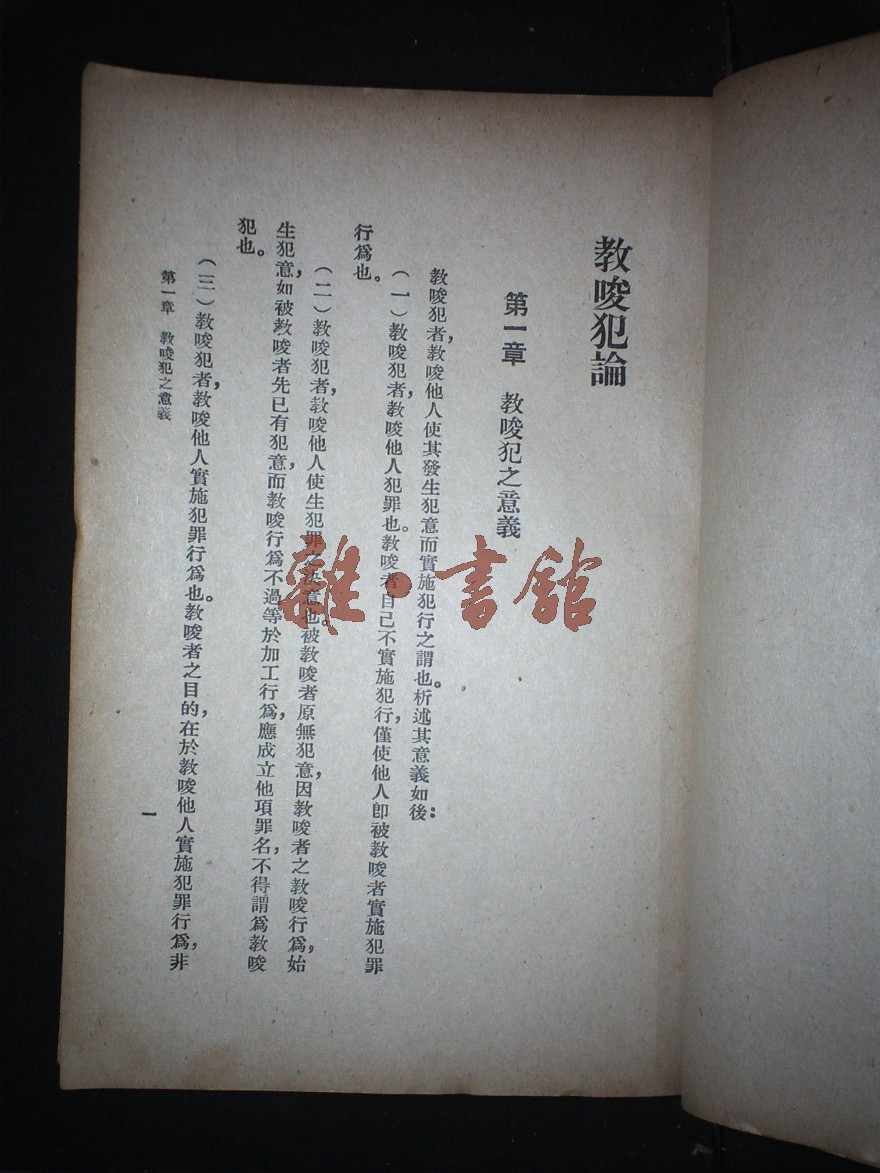 教唆犯論
第一章　教唆犯之意義
教唆犯者，教唆他人使其發生犯意而實施犯行之謂也。析述其意義如後：
（一）教唆犯者，教唆他人犯罪也。教唆者自己不實施犯行，僅使他人卽被教唆者實施犯罪
行爲也。
（二）教唆犯者，教唆他人使生犯罪之決意也。被教唆者原無犯意，因教唆者之教唆行爲，始
生犯意，如被教唆者先已有犯意，而教唆行爲不過等於加工行爲，應成立他項罪名，不得謂爲教唆
犯也。
（三）教唆犯者，教唆他人實施犯罪行爲也。教唆者之目的，在於教唆他人實施犯罪行爲，非
第一章　教唆犯之意義
一
雜·書館